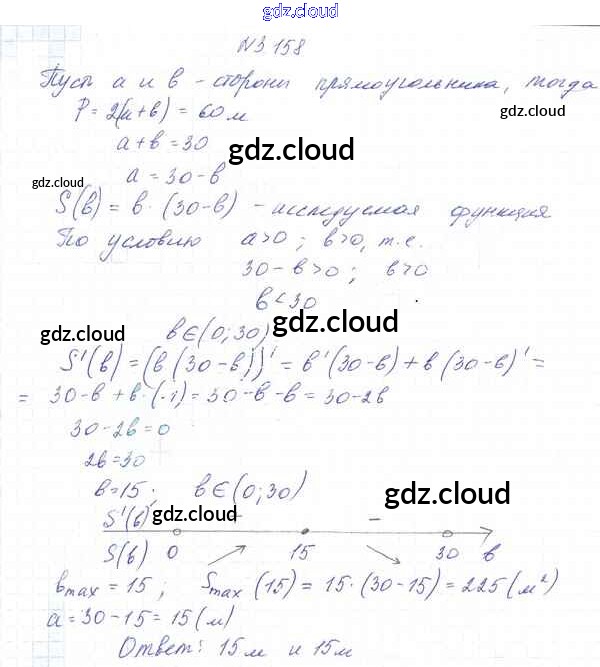 gdz.cloud
gdz.cloud
№3 158
Пусть a и b - стороны прямоугольника, тогда
P = 2(a+b) = 60 м
gdz.cloud
a+b = 30
gdz.cloud
a = 30-b
gdz.cloud
S(b) = b·(30-b) - исследуемая функция
По условию a>0; b>0, т.е.
gdz.cloud
30-b>0; b>0
gdz.cloud
b<30
b∈(0;30)
gdz.cloud
gdz.cloud
S'(b) = (b(30-b))' = b'(30-b)+b(30-b)' =
= 30-b+b·(-1) = 30-b-b = 30-2b
30-2b=0
gdz.cloud
2b=30
b=15; b∈(0;30)
gdz.cloud
gdz.cloud
S'(b) + -
S(b) 0 15 30 b
bmax = 15; Smax (15) = 15·(30-15) = 225 (м²)
a = 30-15 = 15 (м)
Ответ: 15 м и 15 м